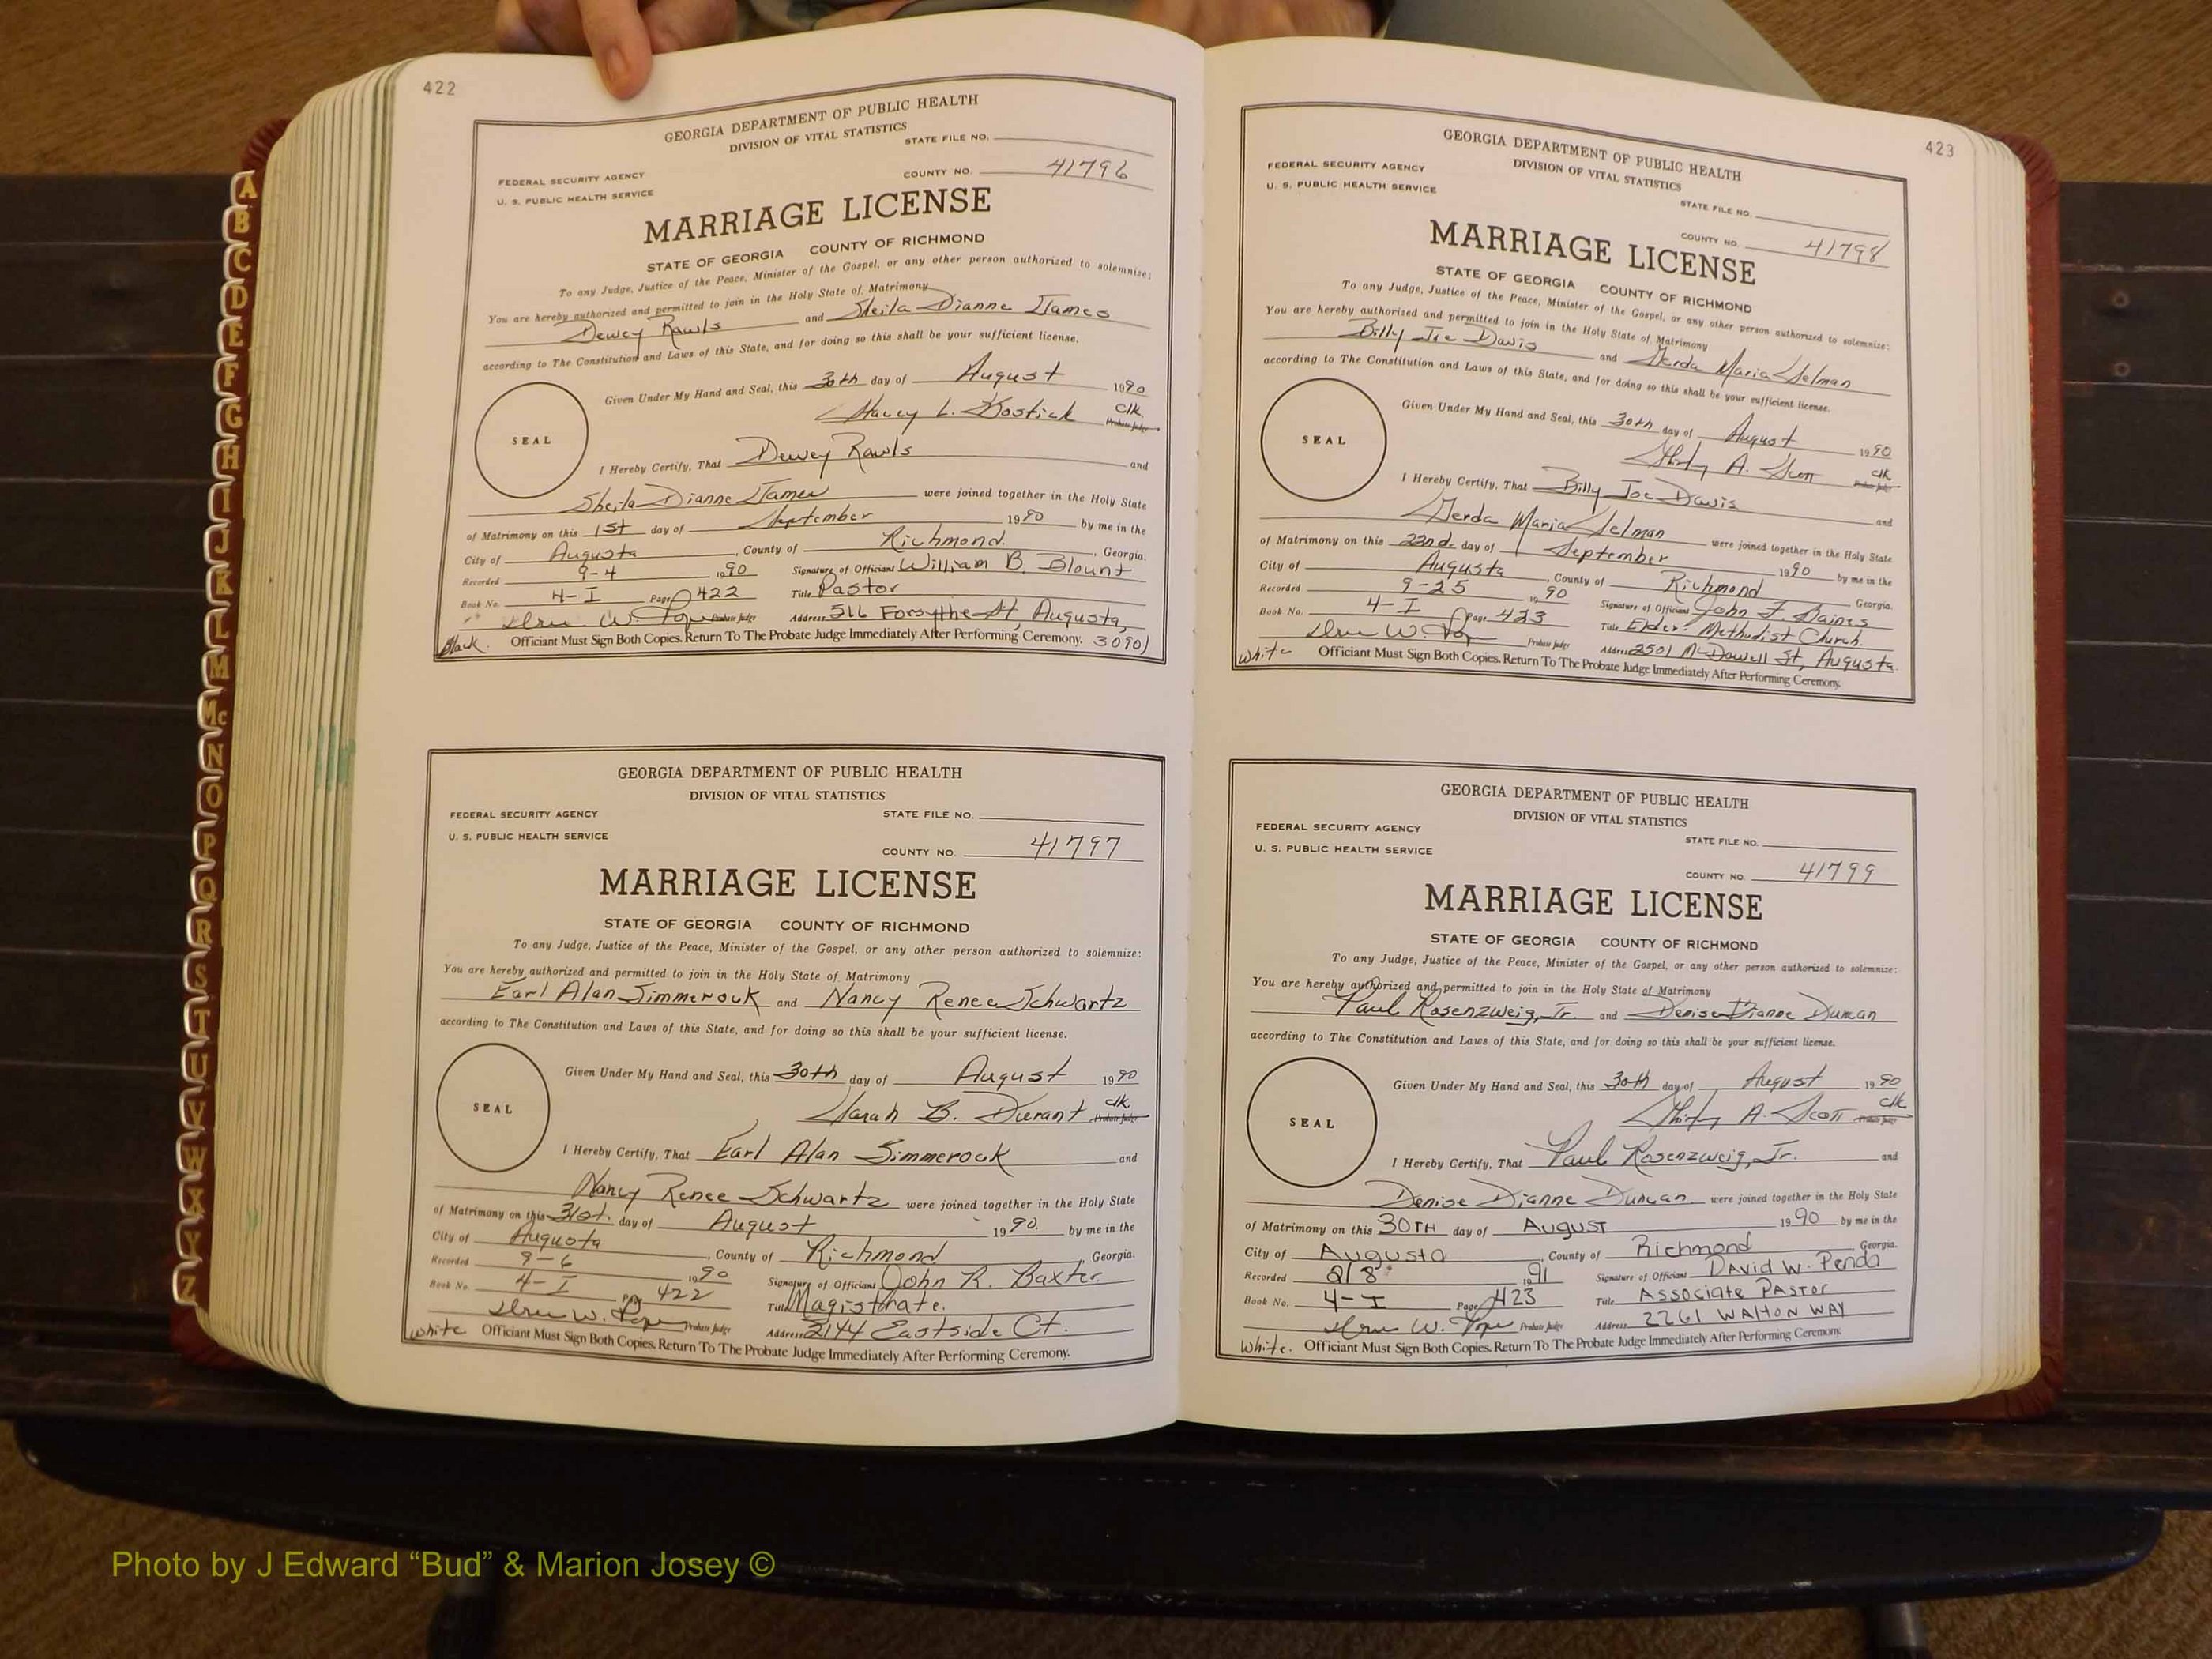 422
GEORGIA DEPARTMENT OF PUBLIC HEALTH
DIVISION OF VITAL STATISTICS
STATE FILE NO.
FEDERAL SECURITY AGENCY
COUNTY NO. 41796
U. S. PUBLIC HEALTH SERVICE
MARRIAGE LICENSE
STATE OF GEORGIA COUNTY OF RICHMOND
To any Judge, Justice of the Peace, Minister of the Gospel, or any other person authorized to solemnize:
You are hereby authorized and permitted to join in the Holy State of Matrimony
Dewey Rawls and Sheila Dianne James
according to The Constitution and Laws of this State, and for doing so this shall be your sufficient license.
Given Under My Hand and Seal, this 30th day of August 1990
L. Bostick Clk. Probate Judge
SEAL
I Hereby Certify, That Dewey Rawls and
Sheila Dianne James were joined together in the Holy State
of Matrimony on this 1st day of September 1990 by me in the
City of Augusta, County of Richmond, Georgia.
Recorded 9-4 1990 Signature of Officiant William B. Blount
Book No. 4-I Page 422 Title Pastor
Probate Judge Address 516 Forsythe St, Augusta,
Black. Officiant Must Sign Both Copies. Return To The Probate Judge Immediately After Performing Ceremony. 30901
GEORGIA DEPARTMENT OF PUBLIC HEALTH
DIVISION OF VITAL STATISTICS
FEDERAL SECURITY AGENCY STATE FILE NO.
U. S. PUBLIC HEALTH SERVICE
COUNTY NO. 41797
MARRIAGE LICENSE
STATE OF GEORGIA COUNTY OF RICHMOND
To any Judge, Justice of the Peace, Minister of the Gospel, or any other person authorized to solemnize:
You are hereby authorized and permitted to join in the Holy State of Matrimony
Earl Alan Simmerock and Nancy Renee Schwartz
according to The Constitution and Laws of this State, and for doing so this shall be your sufficient license.
Given Under My Hand and Seal, this 30th day of August 1990
Sarah B. Durant clk. Probate Judge
SEAL
I Hereby Certify, That Earl Alan Simmerock and
Nancy Renee Schwartz were joined together in the Holy State
of Matrimony on this 31st. day of August 1990. by me in the
City of Augusta, County of Richmond, Georgia.
Recorded 9-6 1990 Signature of Officiant John R. Baxter
Book No. 4-I Page 422 Title Magistrate.
Probate Judge Address 2144 Eastside Ct.
White Officiant Must Sign Both Copies. Return To The Probate Judge Immediately After Performing Ceremony.
423
GEORGIA DEPARTMENT OF PUBLIC HEALTH
DIVISION OF VITAL STATISTICS
FEDERAL SECURITY AGENCY
U. S. PUBLIC HEALTH SERVICE
STATE FILE NO.
COUNTY NO. 41798
MARRIAGE LICENSE
STATE OF GEORGIA COUNTY OF RICHMOND
To any Judge, Justice of the Peace, Minister of the Gospel, or any other person authorized to solemnize:
You are hereby authorized and permitted to join in the Holy State of Matrimony
Billy Joe Davis and Gerda Maria Selman
according to The Constitution and Laws of this State, and for doing so this shall be your sufficient license.
Given Under My Hand and Seal, this 30th day of August 1990
A. Scott clk Probate Judge
SEAL
I Hereby Certify, That Billy Joe Davis and
Gerda Maria Selman were joined together in the Holy State
of Matrimony on this 22nd. day of September 1990 by me in the
City of Augusta, County of Richmond Georgia.
Recorded 9-25 1990 Signature of Officiant John F.
Book No. 4-I Page 423 Title Elder: Methodist Church.
Probate Judge Address 2501 McDowell St, Augusta.
White Officiant Must Sign Both Copies. Return To The Probate Judge Immediately After Performing Ceremony.
GEORGIA DEPARTMENT OF PUBLIC HEALTH
DIVISION OF VITAL STATISTICS
FEDERAL SECURITY AGENCY
STATE FILE NO.
U. S. PUBLIC HEALTH SERVICE
COUNTY NO. 41799
MARRIAGE LICENSE
STATE OF GEORGIA COUNTY OF RICHMOND
To any Judge, Justice of the Peace, Minister of the Gospel, or any other person authorized to solemnize:
You are hereby authorized and permitted to join in the Holy State of Matrimony
Paul Rosenzweig, Jr. and Denise Dianne Duncan
according to The Constitution and Laws of this State, and for doing so this shall be your sufficient license.
Given Under My Hand and Seal, this 30th day of August 1990
A. Scott clk Probate Judge
SEAL
I Hereby Certify, That Paul Rosenzweig, Jr. and
Denise Dianne Duncan were joined together in the Holy State
of Matrimony on this 30TH day of AUGUST 1990 by me in the
City of Augusta, County of Richmond Georgia.
Recorded 1991 Signature of Officiant David W.
Book No. 4-I Page 423 Title Associate Pastor
Probate Judge Address 2261 WALTON WAY
White. Officiant Must Sign Both Copies. Return To The Probate Judge Immediately After Performing Ceremony.
A
B
C
D
E
F
G
H
I
J
K
L
M
Mc
N
O
P
Q
R
S
T
U
V
W
X
Y
Z
Photo by J Edward “Bud” & Marion Josey ©